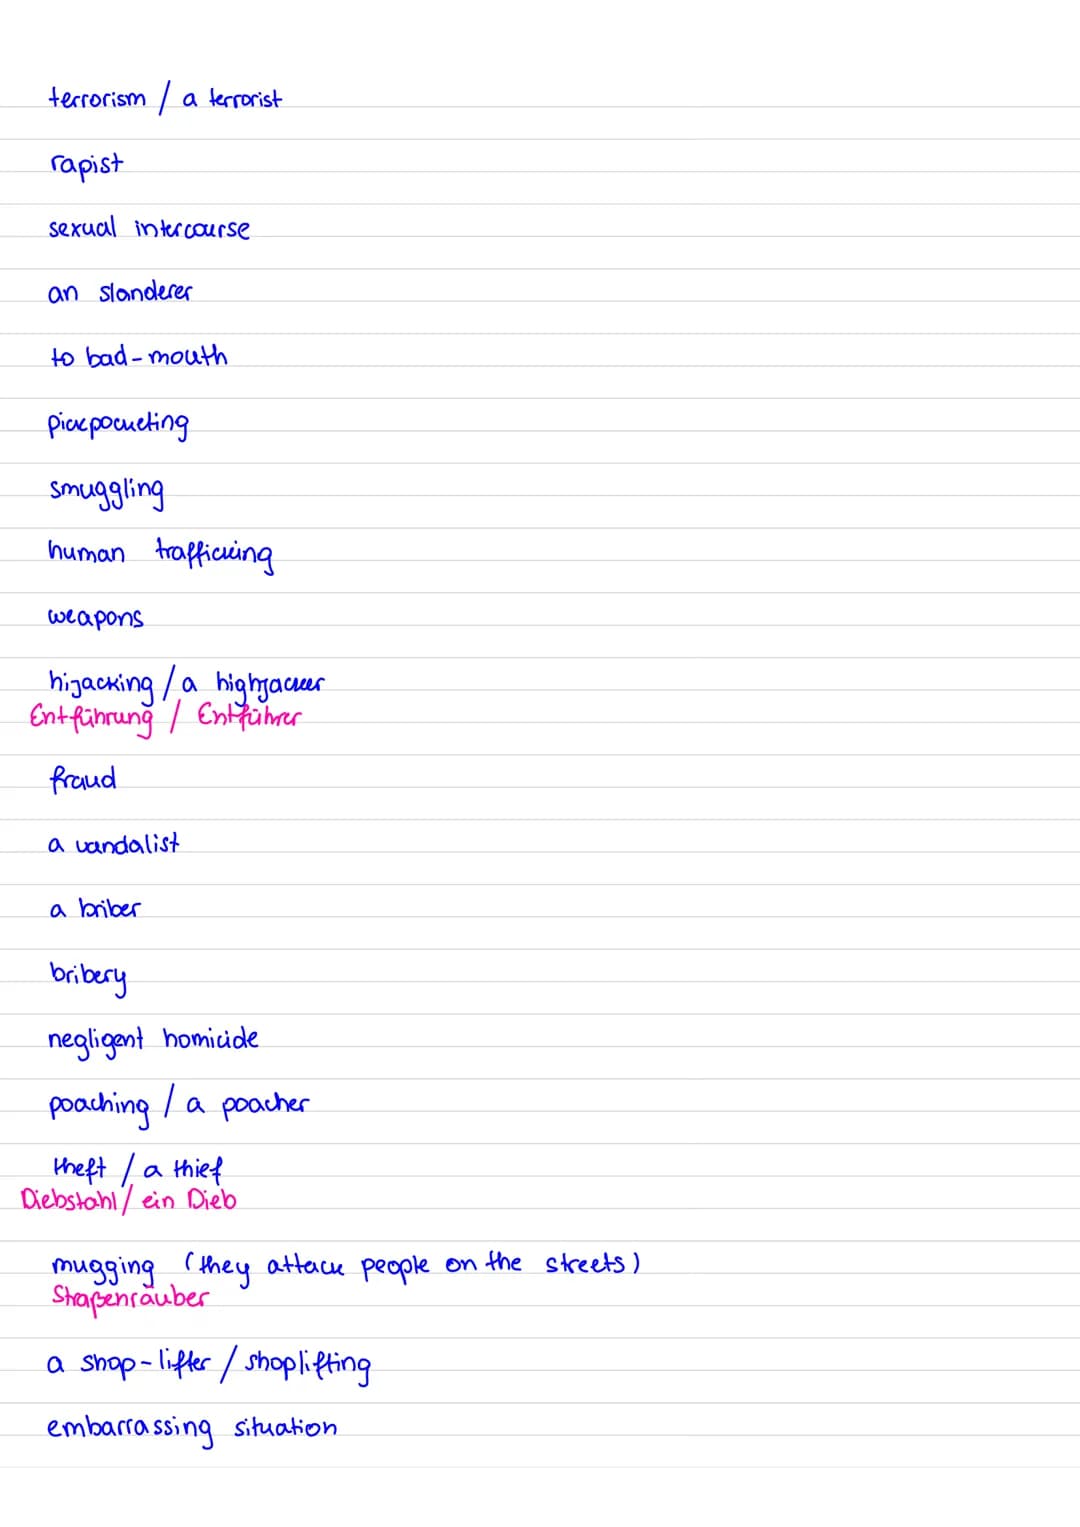 terrorism / a terrorist
rapist
sexual intercourse
an slanderer
to bad-mouth
pickpocketing
smuggling
human trafficking
weapons
hijacking / a highjacker
Entführung / Entführer
fraud
a vandalist
a briber
bribery
negligent homicide
poaching / a poacher
theft / a thief
Diebstahl / ein Dieb
mugging (they attack people on the streets)
Straßenräuber
a shop-lifter / shoplifting
embarrassing situation